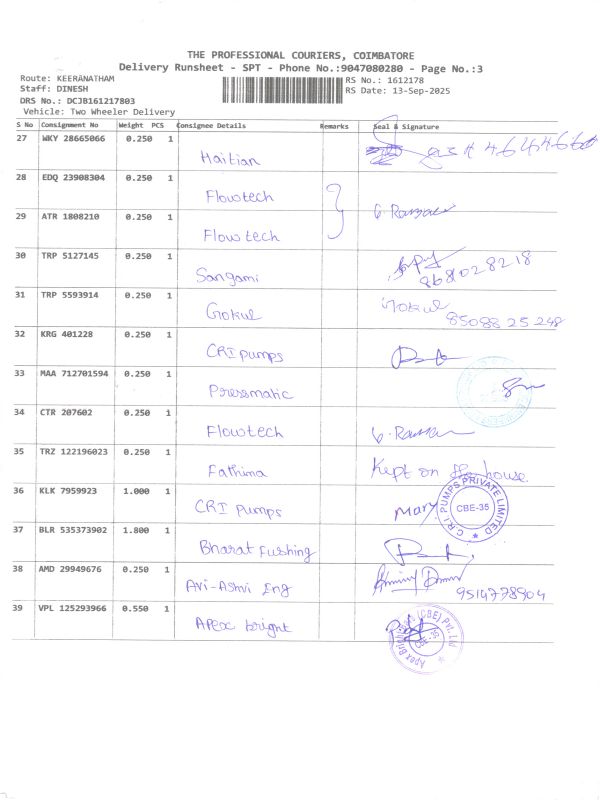 THE PROFESSIONAL COURIERS, COIMBATORE
Delivery Runsheet - SPT - Phone No.:9047080280 - Page No.:3
Route: KEERANATHAM
Staff: DINESH
DRS No.: DCJB161217803
Vehicle: Two Wheeler Delivery
RS No.: 1612178
RS Date: 13-Sep-2025
S No Consignment No Weight PCS Consignee Details Remarks Seal & Signature
27 WKY 28665066 0.250 1 Haitian
28 EDQ 23908304 0.250 1 Flowtech
29 ATR 1808210 0.250 1 Flowtech
30 TRP 5127145 0.250 1 Sangami
31 TRP 5593914 0.250 1 Gokul Gokul 8508825248
32 KRG 401228 0.250 1 CRI pumps
33 MAA 712701594 0.250 1 Pressmatic
34 CTR 207602 0.250 1 Flowtech
35 TRZ 122196023 0.250 1 Fathima Kept on the house.
36 KLK 7959923 1.000 1 CRI pumps Mary C.R.I. PUMPS PRIVATE LIMITED CBE-35
37 BLR 535373902 1.800 1 Bharat Fushing
38 AMD 29949676 0.250 1 Avi-Ashvi Eng 9514778904
39 VPL 125293966 0.550 1 Apex bright Apex Bright (CBE) Pvt. Ltd CBE-35